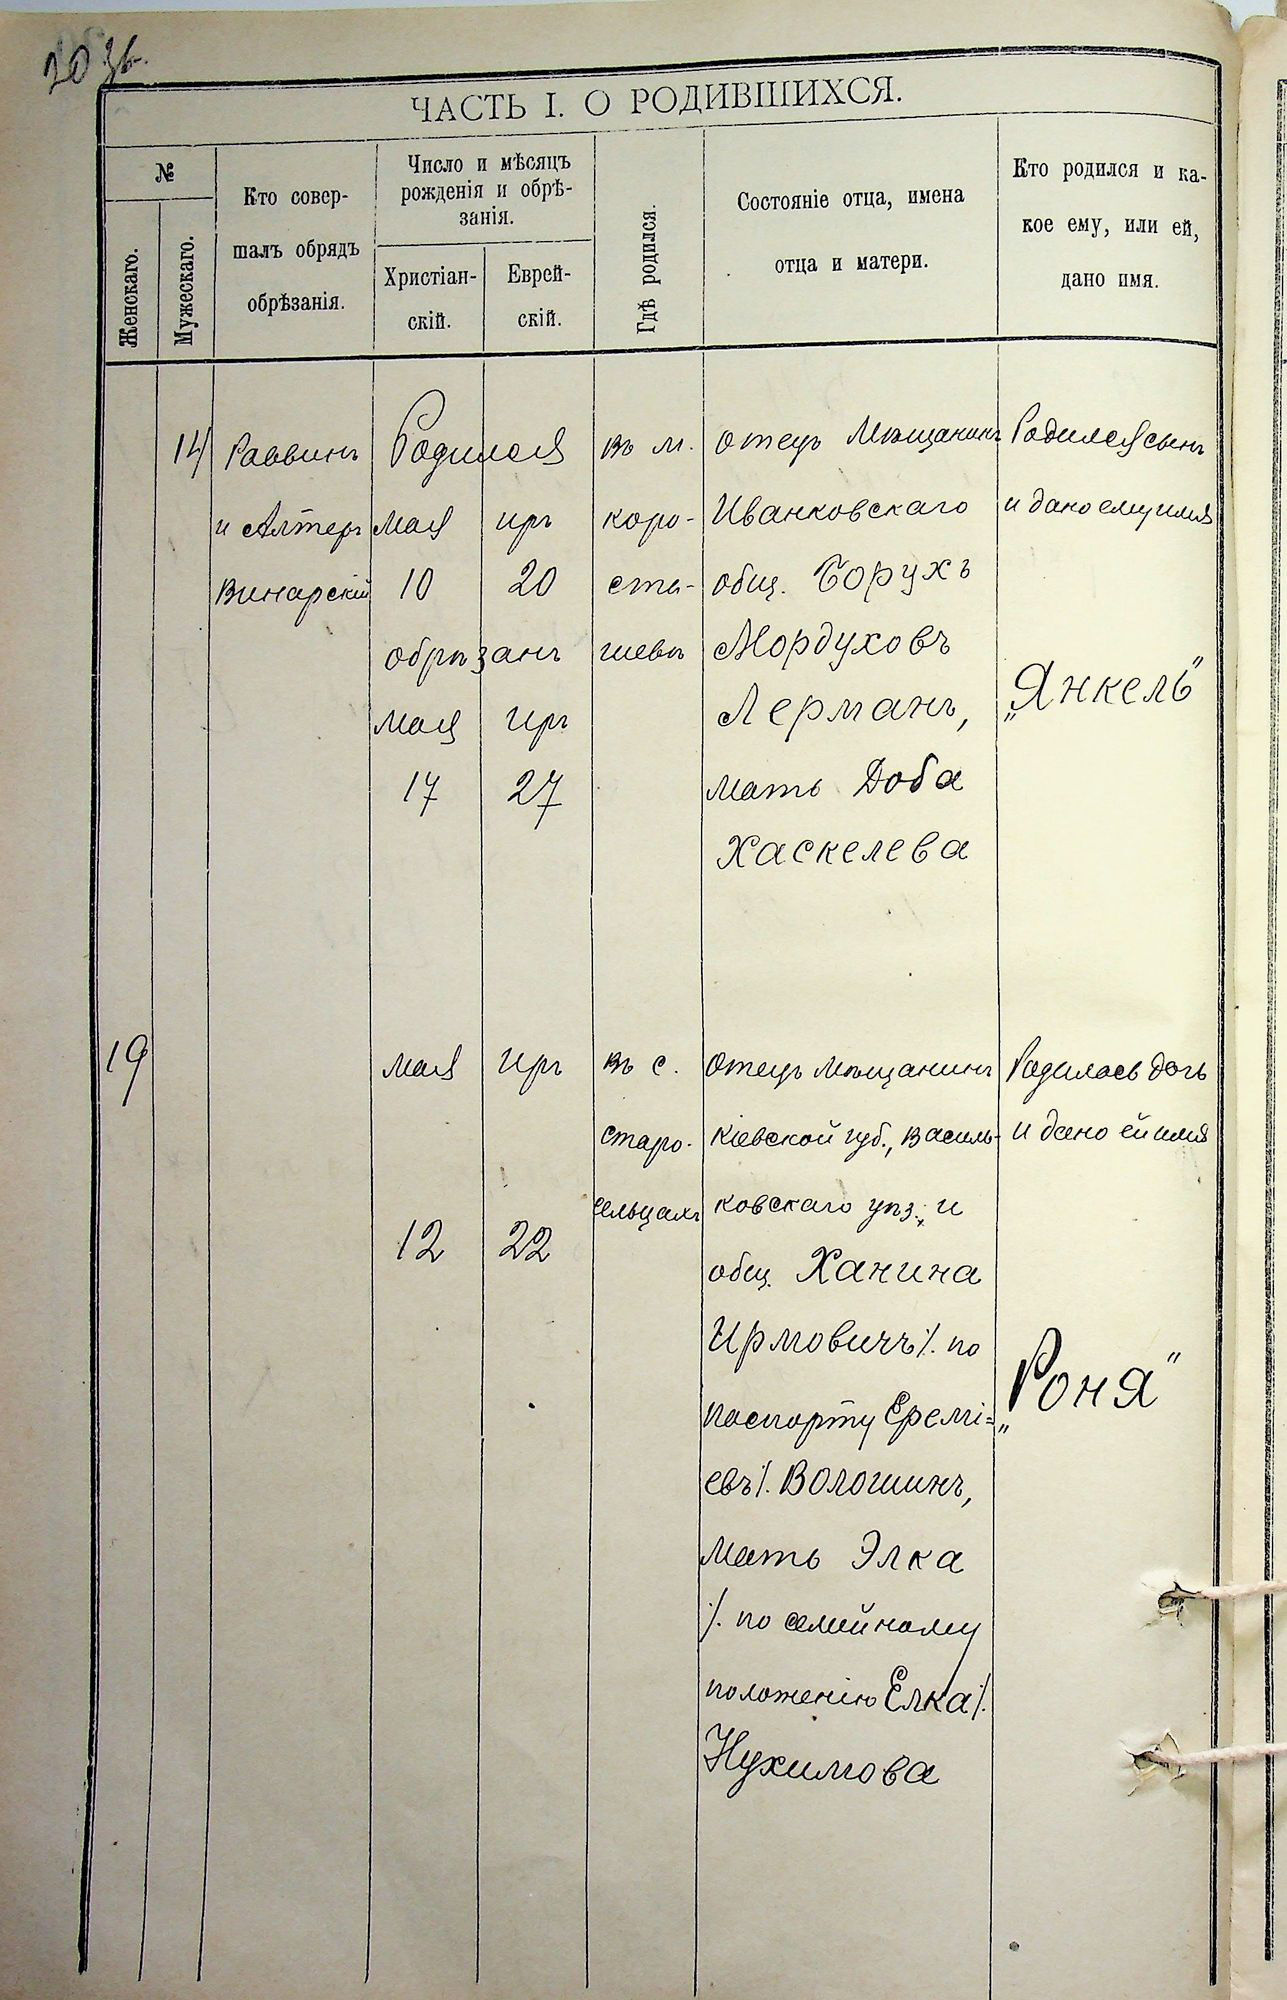 ЧАСТЬ I. О РОДИВШИХСЯ.
№
Женскаго.
Мужескаго.
Кто совер-
шалъ обрядъ
обрѣзанія.
Число и мѣсяцъ
рожденія и обрѣ-
занія.
Христіан-
скій.
Еврей-
скій.
Гдѣ родился.
Состояніе отца, имена
отца и матери.
Кто родился и ка-
кое ему, или ей,
дано имя.
14
Раввинъ
и Алтеръ
Винарскій
Родился
мая иръ
10 20
обрѣзанъ
мая иръ
17 27
въ м.
коро-
сты-
шевѣ
отецъ Мѣщанинъ
Иванковскаго
общ. Борухъ
Мордуховъ
Лерманъ,
мать Доба
Хаскелева
Родился сынъ
и дано ему имя
„Янкель"
19
мая иръ
12 22
въ с.
старо-
сельцахъ
Отецъ мѣщанинъ
Кіевской губ., Василь-
ковскаго уѣз., и
общ. Ханина
Ирмовичъ /. по
паспорту Еремі=
евъ /. Волошинъ,
мать Элка
/. по семейному
положенію Елка /.
Нухимова
Родилась дочь
и дано ей имя
„Роня"